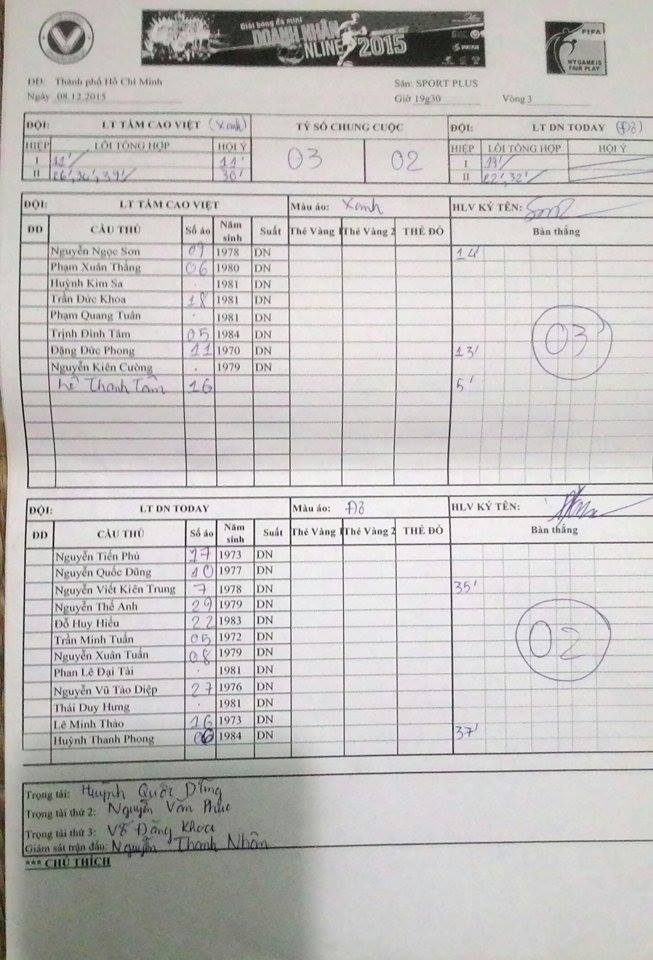 Giải bóng đá mini
DOANH NHÂN
ONLINE 2015
FIFA
MY GAME IS
FAIR PLAY
DĐ: Thành phố Hồ Chí Minh Sân: SPORT PLUS
Ngày 08.12.2015 Giờ 19g30 Vòng 3
ĐỘI: LT TÂM CAO VIỆT (Xanh) TỶ SỐ CHUNG CUỘC ĐỘI: LT DN TODAY (Đỏ)
HIỆP LỖI TỔNG HỢP HỘI Ý 03 02 HIỆP LỖI TỔNG HỢP HỘI Ý
I 12' 11' I 19'
II 26', 36', 39' 30' II 22', 32'
ĐỘI: LT TÂM CAO VIỆT Màu áo: Xanh HLV KÝ TÊN:
DD CẦU THỦ Số áo Năm sinh Suất Thẻ Vàng 1 Thẻ Vàng 2 THẺ ĐỎ Bàn thắng
Nguyễn Ngọc Sơn 09 1978 DN 14'
Phạm Xuân Thắng 06 1980 DN
Huỳnh Kim Sa . 1981 DN
Trần Đức Khoa 18 1981 DN
Phạm Quang Tuấn . 1981 DN
Trịnh Đình Tâm 05 1984 DN
Đặng Đức Phong 11 1970 DN 13'
Nguyễn Kiên Cường . 1979 DN
Lê Thanh Tâm 16 5'
03
ĐỘI: LT DN TODAY Màu áo: Đỏ HLV KÝ TÊN:
DD CẦU THỦ Số áo Năm sinh Suất Thẻ Vàng 1 Thẻ Vàng 2 THẺ ĐỎ Bàn thắng
Nguyễn Tiến Phú 17 1973 DN
Nguyễn Quốc Dũng 10 1977 DN
Nguyễn Viết Kiên Trung 7 1978 DN 35'
Nguyễn Thế Anh 29 1979 DN
Đỗ Huy Hiếu 22 1983 DN
Trần Minh Tuấn 05 1972 DN
Nguyễn Xuân Tuấn 08 1979 DN
Phan Lê Đại Tài . 1981 DN
Nguyễn Vũ Tảo Diệp 27 1976 DN
Thái Duy Hưng . 1981 DN
Lê Minh Thảo 16 1973 DN
Huỳnh Thanh Phong 06 1984 DN 37'
02
Trọng tài: Huỳnh Quốc Dũng
Trọng tài thứ 2: Nguyễn Văn Phúc
Trọng tài thứ 3: Võ Đăng Khoa
Giám sát trận đấu: Nguyễn Thanh Nhân
*** CHÚ THÍCH